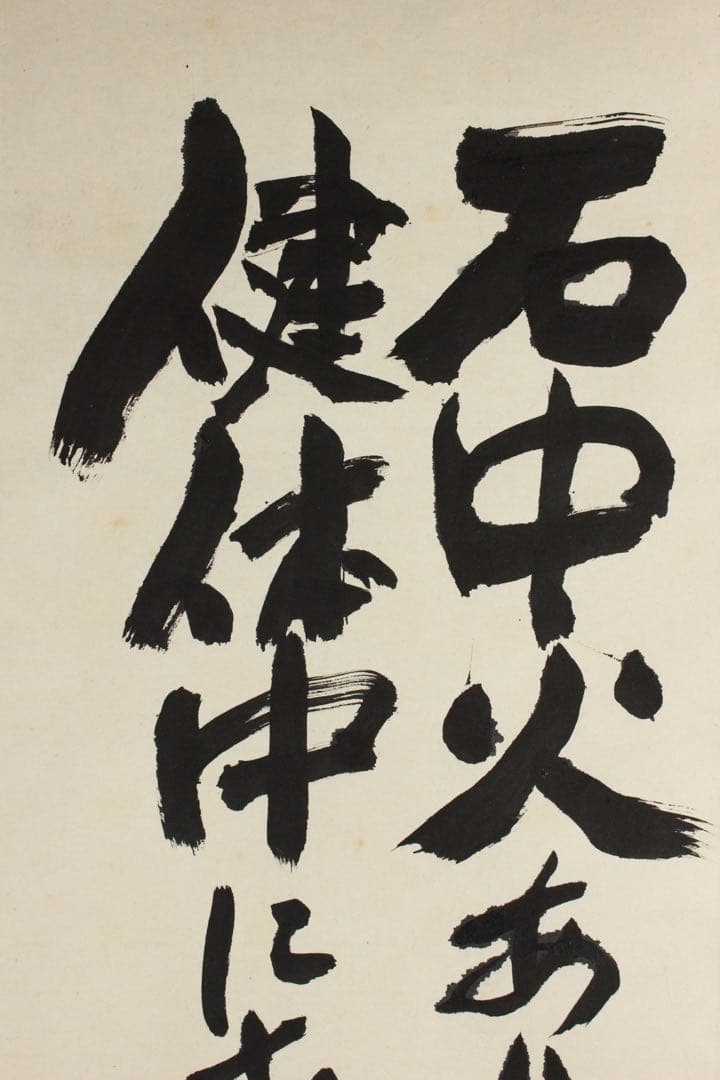 石中火あ
健体中に